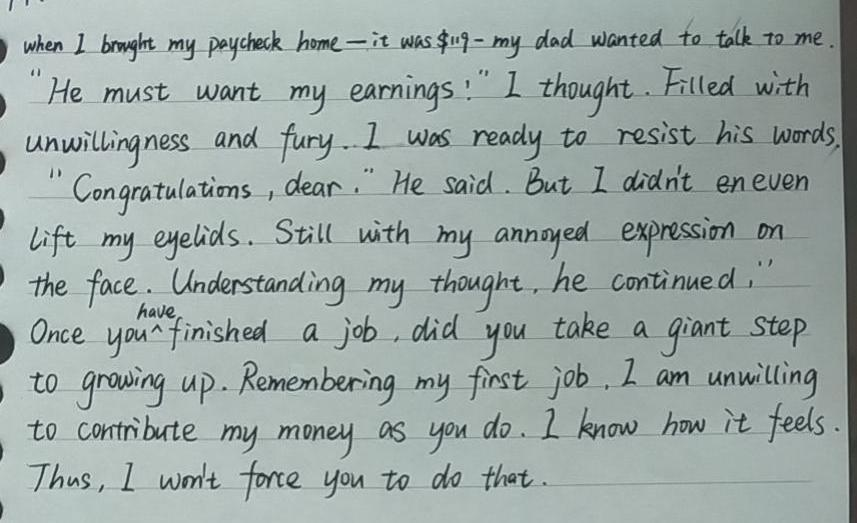 when I brought my paycheck home — it was $119 - my dad wanted to talk to me.
"He must want my earnings!" I thought. Filled with
unwillingness and fury. I was ready to resist his words.
"Congratulations, dear." He said. But I didn't en even
lift my eyelids. Still with my annoyed expression on
the face. Understanding my thought, he continued,"
Once you have finished a job, did you take a giant step
to growing up. Remembering my first job, I am unwilling
to contribute my money as you do. I know how it feels.
Thus, I won't force you to do that.